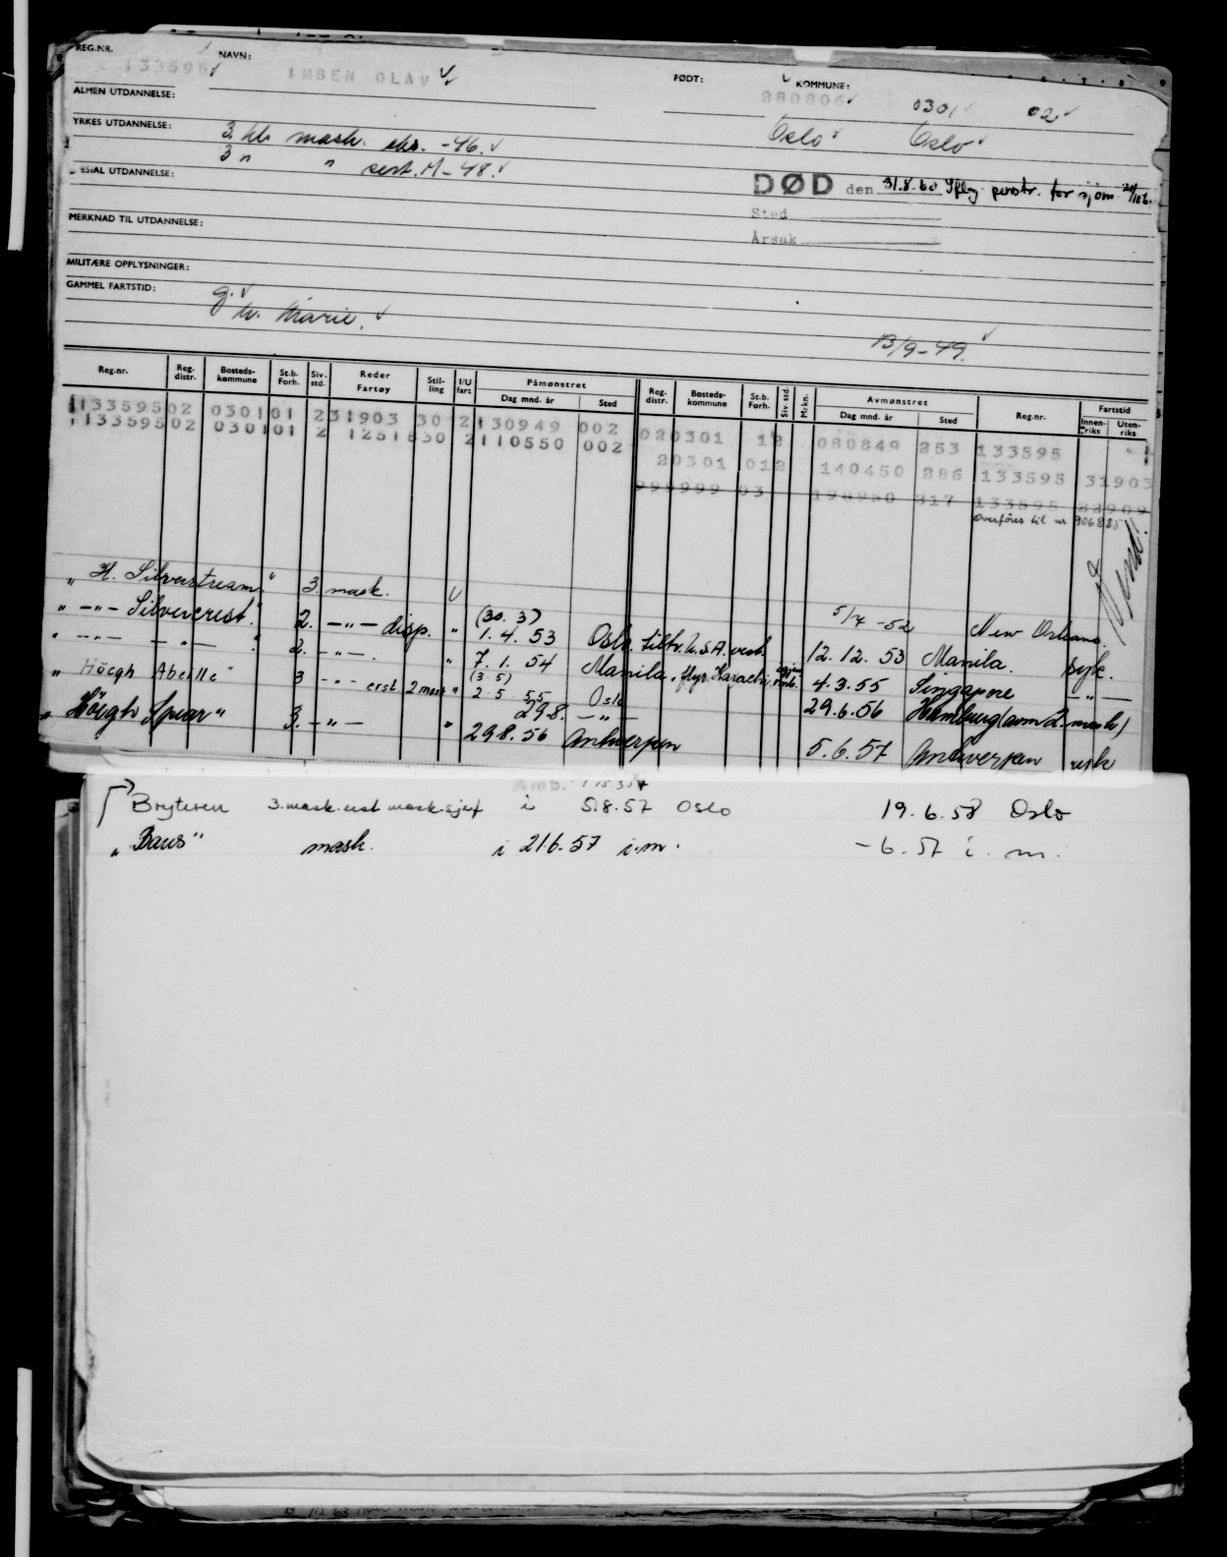 REG.NR. NAVN: FØDT: KOMMUNE:
133595 IMSEN OLAV 280806 0301 02
ALMEN UTDANNELSE:
Oslo Oslo
YRKES UTDANNELSE: 3. kl. mask. eks. -46.
3 " " sert. M-48.
ESIAL UTDANNELSE:
DØD den 31.8.60 Iflg. for sjøm.
Sted
Årsak
MERKNAD TIL UTDANNELSE:
MILITÆRE OPPLYSNINGER:
GAMMEL FARTSTID:
g. v. Marie.
13/9-49.
Reg.nr. Reg. distr. Bosteds-kommune St.b. Forh. Siv. std. Reder Fartøy Stilling I/U fart Påmønstret Dag mnd. år Sted Reg. distr. Bosteds-kommune St.b. Forh. Siv. std. Mrkn. Avmønstret Dag mnd. år Sted Reg.nr. Fartstid Innen-riks Uten-riks
133595 02 0301 01 2 31903 30 2 130949 002 020301 1 2 080849 253 133595
133595 02 0301 01 2 1251 830 2 110550 002 20301 01 2 140450 286 133595 31903
999999 03 190950 317 133595 22909
Overføres til nr 906885
" H. Silverstream" 3. mask. U 5/7 -52 New Orleans
" -"- Silvercrest" 2. -"- disp. " (30.3) 1.4.53 Oslo tiltr. U.S.A. vest. 12.12.53 Manila. sejk.
" -"- -"- " 2. -"- . " 7.1.54 Manila, flyr. Karachi 4.3.55 Singapore -"-
" Höegh Abeille" 3 -"- erst 2 mask " (3.5) 2.5.55 Oslo 29.6.56 Hamburg (som 2. mask)
29.8. -"-
" Höegh Spear" 3. -"- " 29.8.56 Antwerpen 5.6.57 Antwerpen sejk
Bryteren 3. mask. erst mask.sjef i 5.8.57 Oslo 19.6.58 Oslo
" Baus" mask. i 21.6.57 i.m. -6.57 i. m.